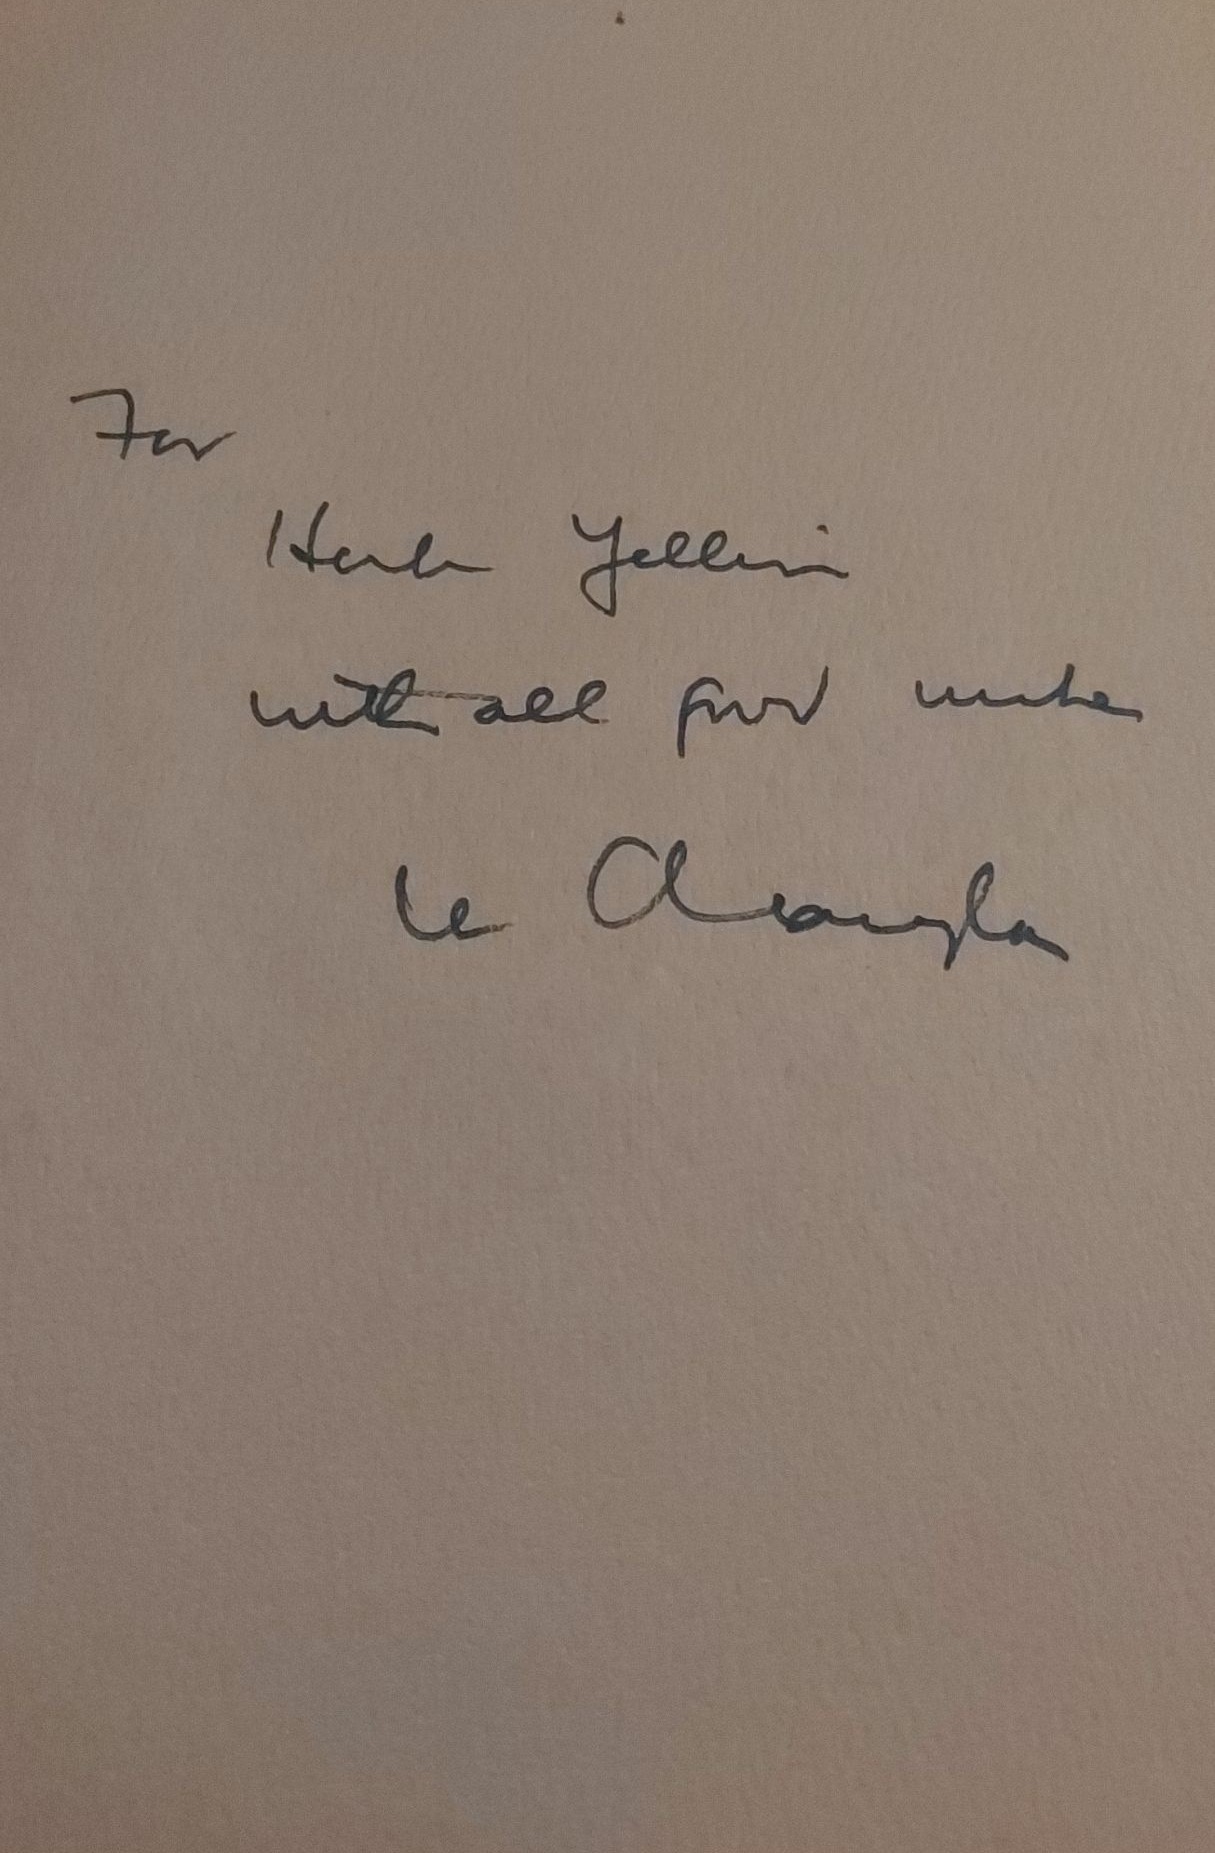 For
Herb Yellin
with all good wishes